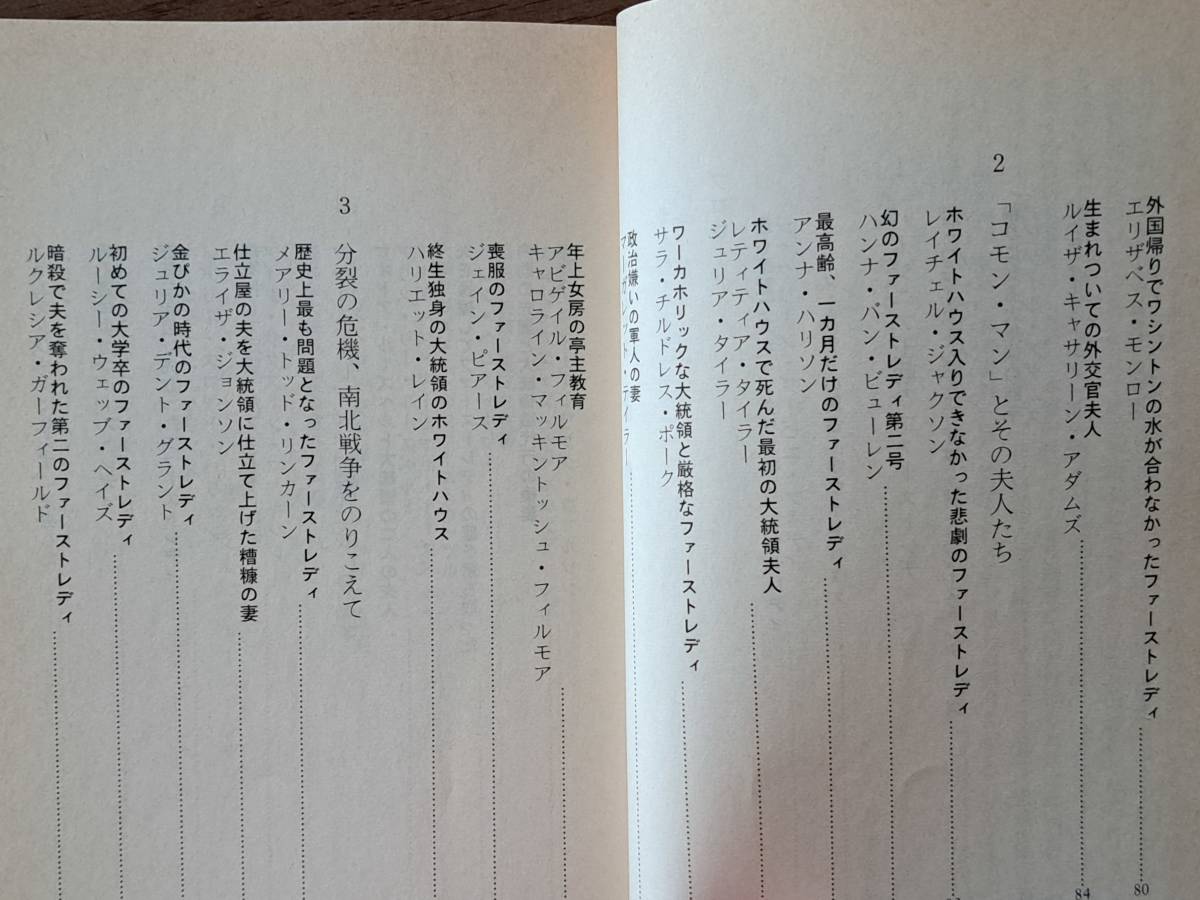 外国帰りでワシントンの水が合わなかったファーストレディ
エリザベス・モンロー
80
生まれついての外交官夫人
ルイザ・キャサリーン・アダムズ
84
2 「コモン・マン」とその夫人たち
ホワイトハウス入りできなかった悲劇のファーストレディ
レイチェル・ジャクソン
幻のファーストレディ第二号
ハンナ・バン・ビューレン
最高齢、一カ月だけのファーストレディ
アンナ・ハリソン
ホワイトハウスで死んだ最初の大統領夫人
レティティア・タイラー
ジュリア・タイラー
ワーカホリックな大統領と厳格なファーストレディ
サラ・チルドレス・ポーク
政治嫌いの軍人の妻
マーガレット・テイラー
年上女房の亭主教育
アビゲイル・フィルモア
キャロライン・マッキントッシュ・フィルモア
喪服のファーストレディ
ジェイン・ピアース
終生独身の大統領のホワイトハウス
ハリエット・レイン
3 分裂の危機、南北戦争をのりこえて
歴史上最も問題となったファーストレディ
メアリー・トッド・リンカーン
仕立屋の夫を大統領に仕立て上げた糟糠の妻
エライザ・ジョンソン
金ぴかの時代のファーストレディ
ジュリア・デント・グラント
初めての大学卒のファーストレディ
ルーシー・ウェッブ・ヘイズ
暗殺で夫を奪われた第二のファーストレディ
ルクレシア・ガーフィールド